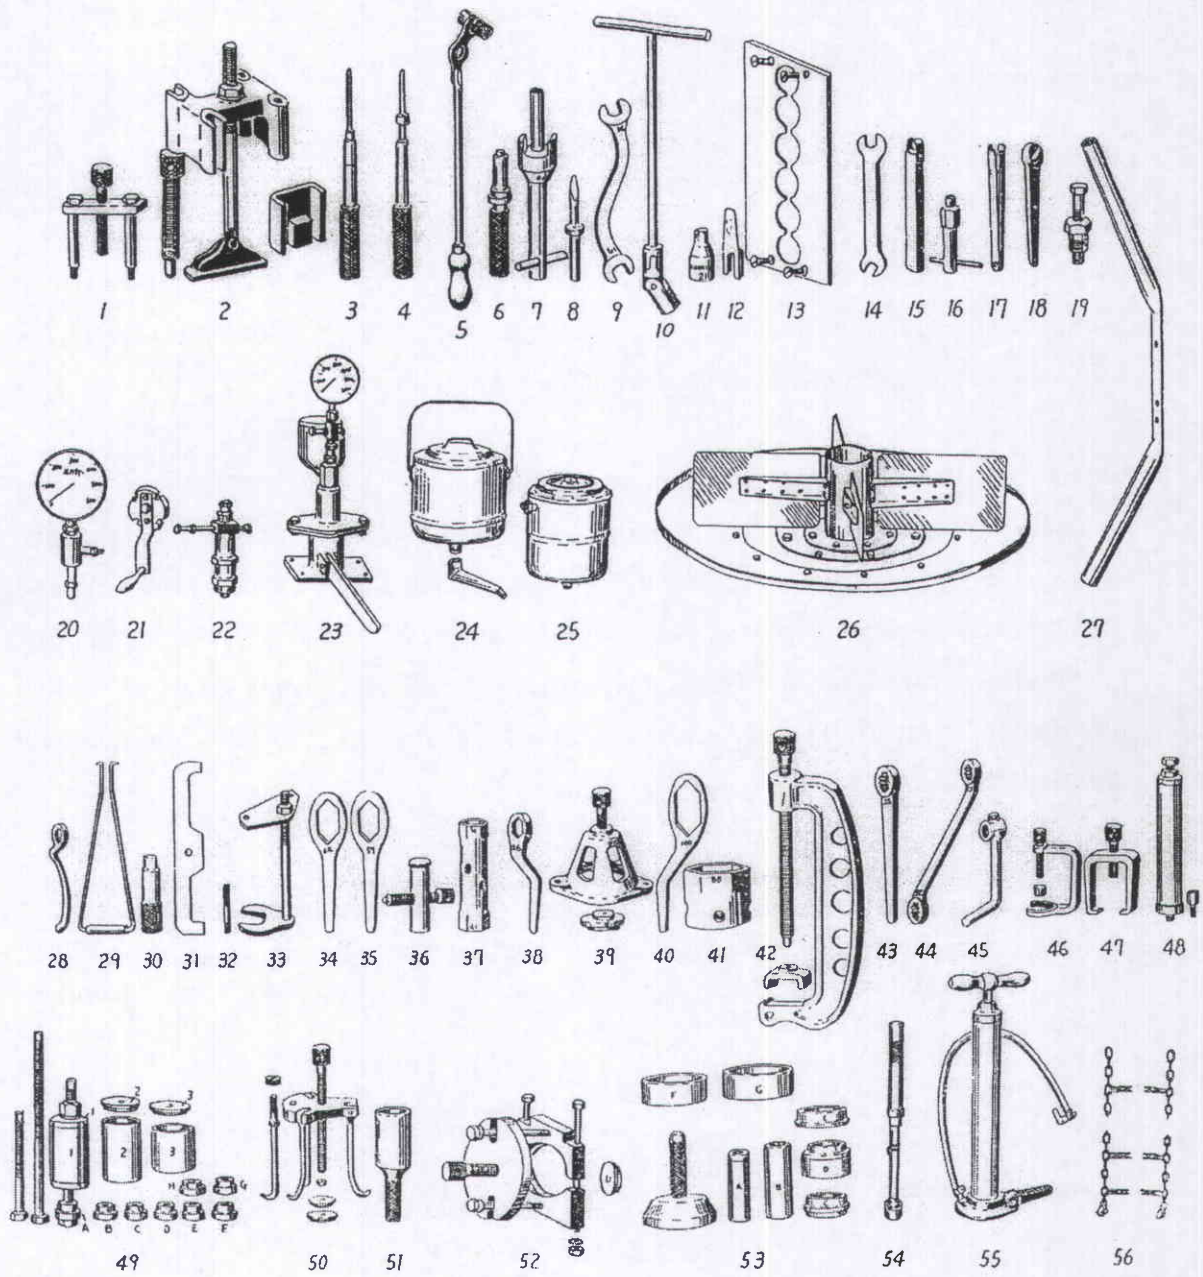 1 2 3 4 5 6 7 8 9 10 11 12 13 14 15 16 17 18 19 27
20 21 22 23 24 25 26
28 29 30 31 32 33 34 35 36 37 38 39 40 41 42 43 44 45 46 47 48
1 2 3
1 2 3
H G
A B C D E F
F G
A B
D
49 50 51 52 53 54 55 56